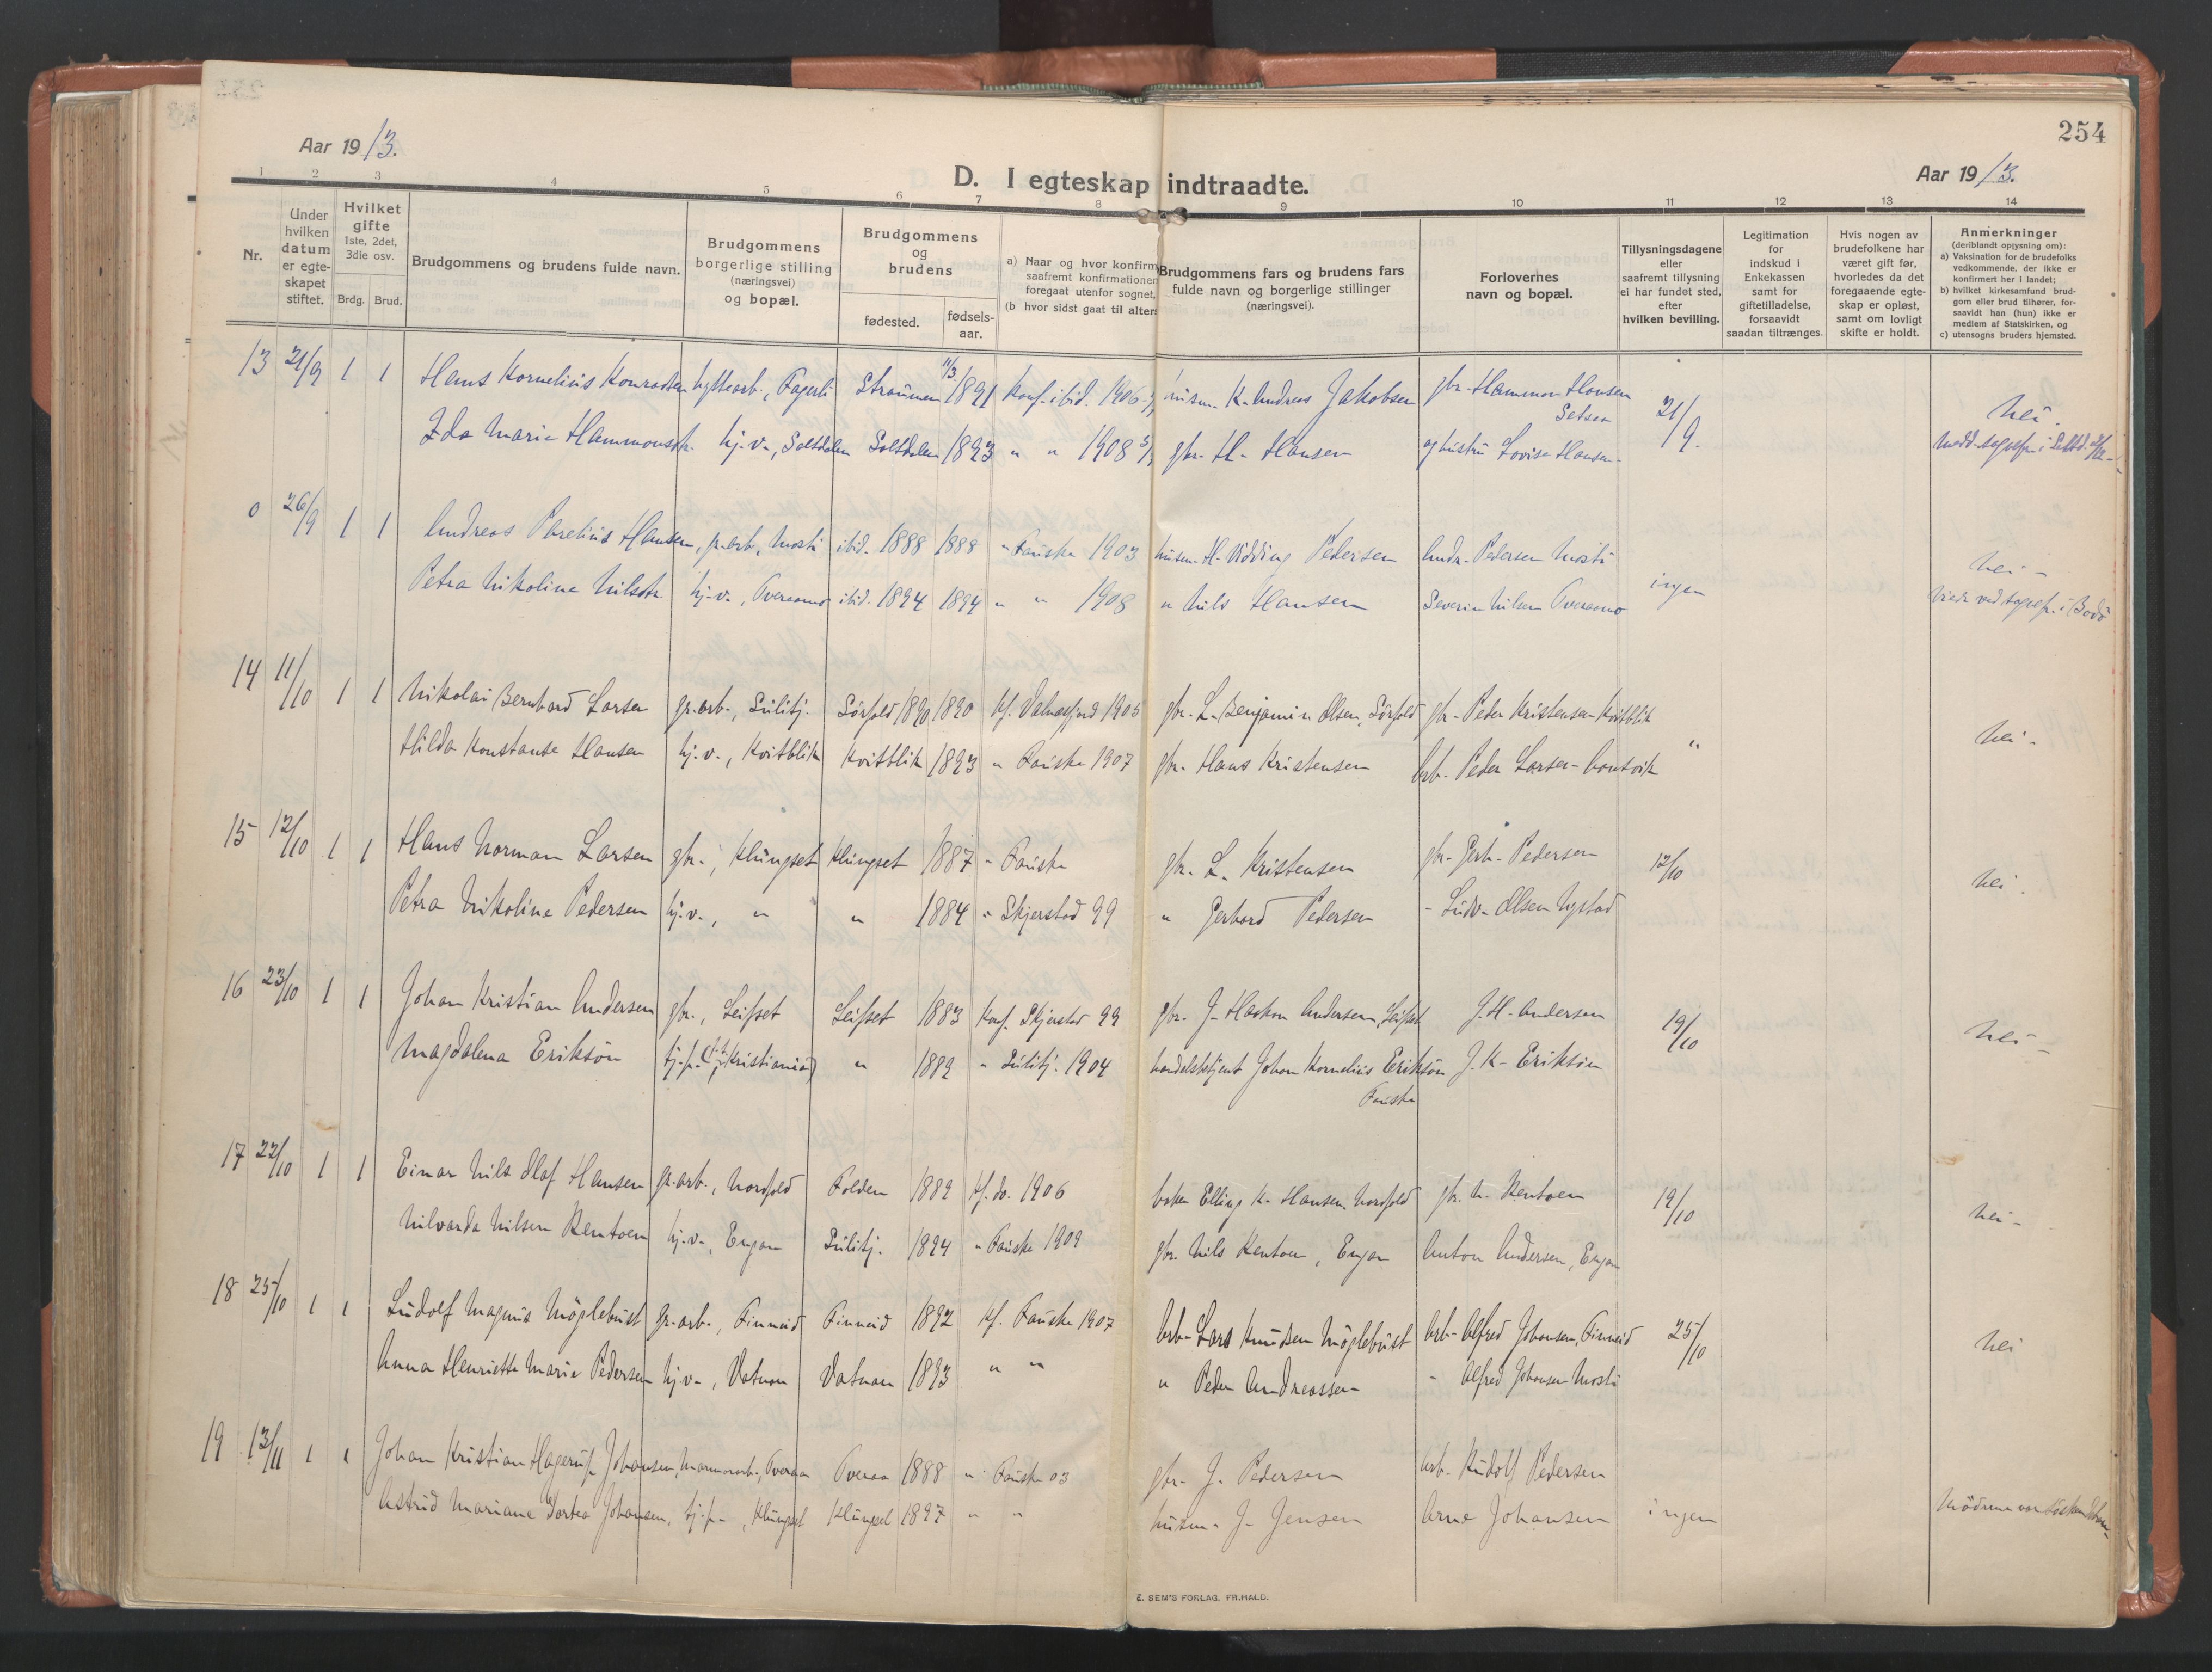 254
Aar 19 13.
Aar 19 13.
D. I egteskap indtraadte.
1 2 3 4 5 6 7 8 9 10 11 12 13 14
Nr.
Under hvilken datum er egte- skapet stiftet.
Hvilket gifte 1ste, 2det, 3die osv.
Brdg. Brud.
Brudgommens og brudens fulde navn.
Brudgommens borgerlige stilling (næringsvei) og bopæl.
Brudgommens og brudens
fødested.
fødsels- aar.
a) Naar og hvor konfirm
saafremt konfirmationen
foregaat utenfor sognet,
(b hvor sidst gaat til alters
Brudgommens fars og brudens fars
fulde navn og borgerlige stillinger
(næringsvei).
Forlovernes
navn og bopæl.
Tillysningsdagene
eller
saafremt tillysning
ei har fundet sted,
efter
hvilken bevilling.
Legitimation
for
indskud i
Enkekassen
samt for
giftetilladelse,
forsaavidt
saadan tiltrænges.
Hvis nogen av
brudefolkene har
været gift før,
hvorledes da det
foregaaende egte-
skap er opløst,
samt om lovligt
skifte er holdt.
Anmerkninger
(deriblandt oplysning om):
a) Vaksination for de brudefolks
vedkommende, der ikke er
konfirmert her i landet;
b) hvilket kirkesamfund brud-
gom eller brud tilhører, for-
saavidt han (hun) ikke er
medlem af Statskirken, og
c) utensogns bruders hjemsted.
13 21/9 1 1 Hans Kornelius Konradsen hyttearb., Fagerli Straumen 11/3 1891 Konf. ibid. 1906 husm. K. Andreas Jakobsen gbr. Hammon Hansen Setsaa 21/9. Nei.
Ida Marie Hammonsdtr. hj.v., Saltdalen Saltdalen 1893 " " 1908 gbr. H. Hansen og hustru Lovise Hansen
0 26/9 1 1 Andreas Parelius Hansen, gr.arb., Mosti ibid. 1888 1888 " Fauske 1903 husm. H. Vidding Pedersen Andr. Pedersen Mosti ingen Nei -
Petra Nikoline Nilsdtr. hj.v., Overaamo ibid. 1894 1894 " " 1908 " Nils Hansen Severin Nilsen Overaamo Viede ved sognepr. i Bodø
14 11/10 1 1 Nikolai Bernhard Larsen gr.arb., Sulitj. Sørfold 1890 1890 Kf. Valnesfjord 1905 gbr. L. Benjamin Olsen, Sørfold gbr. Peder Kristensen Kvitblik " Nei.
Hilda Konstanse Hansen hj.v., Kvitblik Kvitblik 1893 " Fauske 1907 gbr. Hans Kristensen Arb. Peder Larsen
15 12/10 1 1 Hans Norman Larsen gbr., Klungset Klungset 1887 " Fauske gbr. L. Kristensen gbr. Gerh. Pedersen 12/10 Nei.
Petra Nikoline Pedersen hj.v., " " 1884 " Skjerstad 99 " Gerhard Pedersen - Ludv. Olsen Nystad
16 23/10 1 1 Johan Kristian Andersen gbr., Leifset Leifset 1883 Konf. Skjerstad 99 gbr. J. Haakon Andersen, Leifset J. H. Andersen 19/10 Nei -
Magdalena Eriksøn tj.p. (f.t. Kristiania) " 1889 " Sulitj. 1904 handelsbetjent Johan Kornelius Eriksøn J. K. Eriksøn
Fauske
17 22/10 1 1 Einar Nils Olaf Hansen gr.arb., Nordfold Folden 1889 Kf. do. 1906 baker Elling K. Hansen Nordfold gbr. N. Kentoen 19/10 Nei -
Nilvarda Nilsen Kentoen hj.v., Engan Sulitj. 1894 " Fauske 1909 gbr. Nils Kentoen, Engan Anton Andersen, Engan
18 25/10 1 1 Ludolf Magnus Møglebust gr.arb., Finneid Finneid 1892 Kf. Fauske 1907 Arb. Lars Knudsen Møglebust Arb. Alfred Johansen, Finneid 25/10 Nei
Anna Henriette Marie Pedersen hj.v., Vatnan Vatnan 1893 " " " Peder Andreassen - Alfred Johansen Mosti
19 13/11 1 1 Johan Kristian Hagerup Johansen, Marmorarb., Overaa Overaa 1888 " Fauske 03 gbr. J. Pedersen Arb. Rudolf Pedersen
Astrid Mariane Dortea Johansen, tj.p., Klungset Klungset 1897 " " husm. J. Jensen Arne Johansen ingen Mødrene var søskendebarn
E. SEM'S FORLAG, FR.HALD.